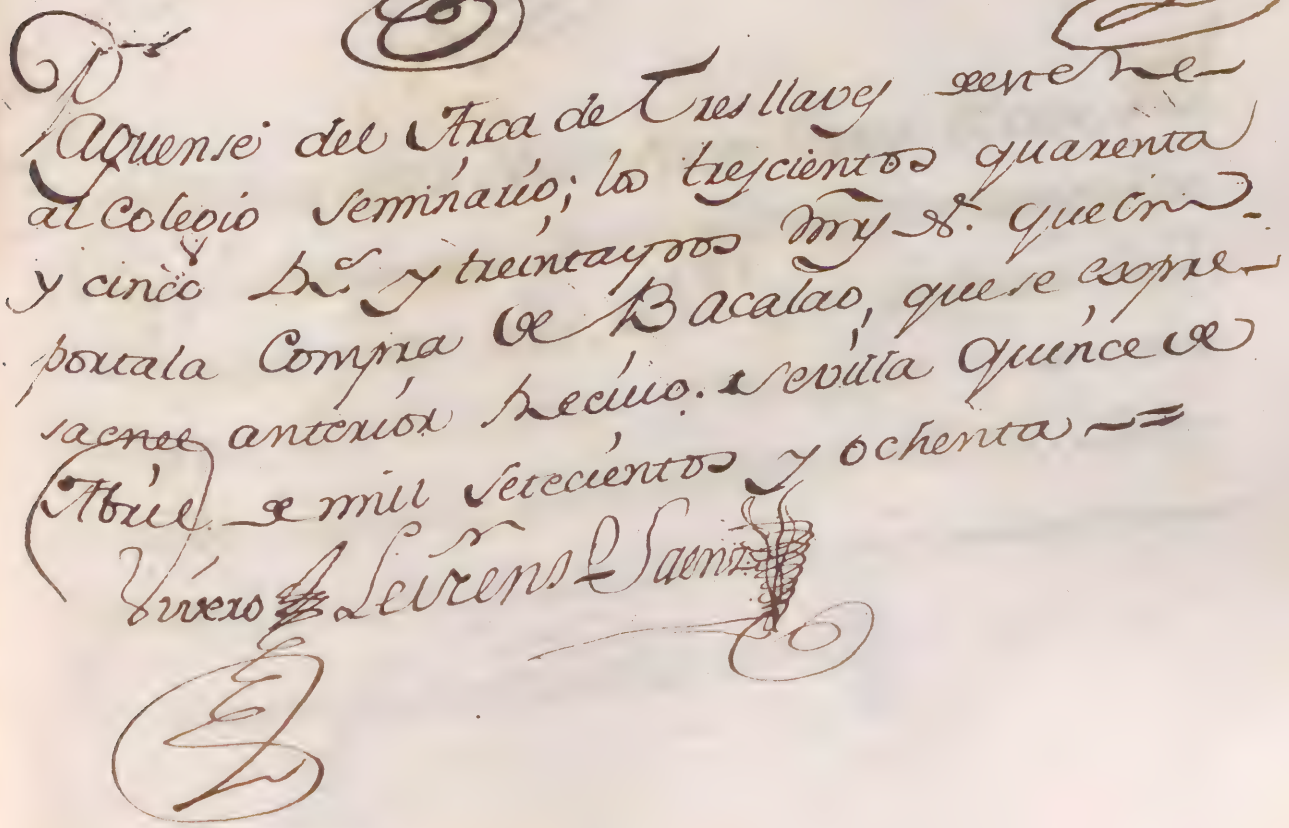 Paguense del Arca de Tres llaves de este Re-
al Colegio Seminario; los trescientos quarenta
y cinco Rs. y treinta y dos mrs. vn. que im-
porta la Compra de Bacalao, que se expre-
sa en el anterior Recivo. Sevilla Quince de
Abril de mill setecientos y ochenta =
Vivero Leirens Saenz